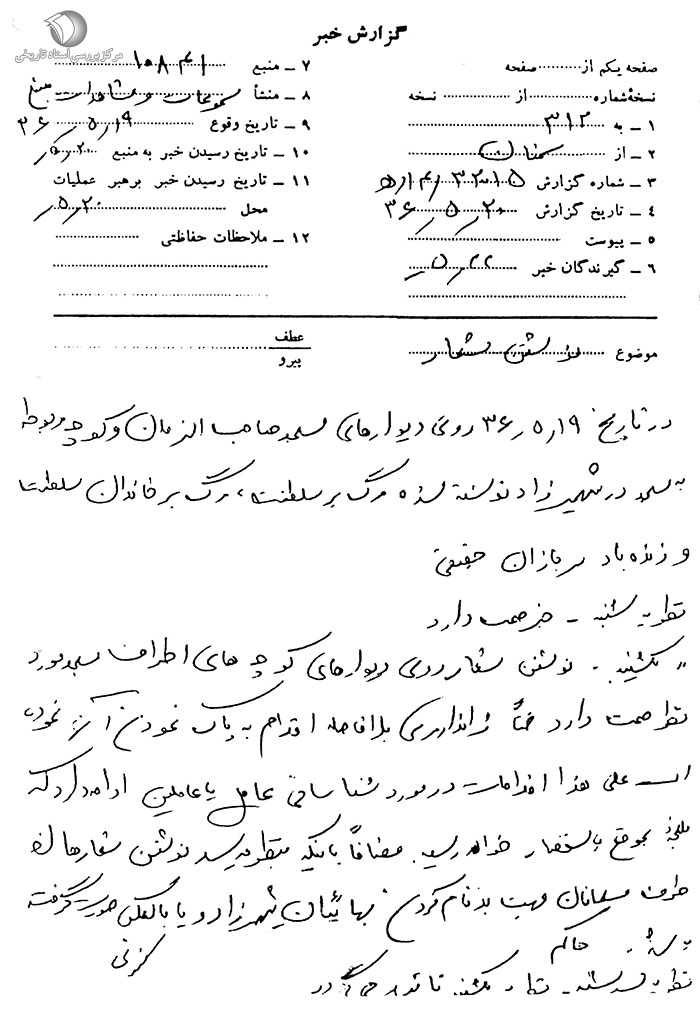 مرکز بررسی اسناد تاریخی
گزارش خبر
صفحه یکم از ........ صفحه
نسخهٔ شماره ........ از ........ نسخه
۱ ـ به ۳۱۲
۲ ـ از سمنان
۳ ـ شماره گزارش
۴ ـ تاریخ گزارش ۳۶٫۵٫۲۰
۵ ـ پیوست
۶ ـ گیرندگان خبر
۷ ـ منبع ۱۰۸۴۱
۸ ـ منشأ مسموعات و مشاهدات منبع
۹ ـ تاریخ وقوع ۳۶٫۵٫۱۹
۱۰ ـ تاریخ رسیدن خبر به منبع ۵٫۲۰
۱۱ ـ تاریخ رسیدن خبر برهبر عملیات
محل ۵٫۲۰
۱۲ ـ ملاحظات حفاظتی
موضوع نوشتن شعار
عطف
پیرو
در تاریخ ۳۶٫۵٫۱۹ روی دیوارهای مسجد صاحب الزمان و کوچه مربوطه
به مسجد در شهمیرزاد نوشته شده مرگ بر سلطنت، مرگ بر خاندان سلطنت
و زنده باد سربازان حقیقی
نظریه شنبه ـ خبر صحت دارد
" یکشنبه . نوشتن شعار روی دیوارهای کوچه های اطراف مسجد مورد
نظر صحت دارد ضمناً ژاندارمری بلافاصله اقدام به پاک نمودن آن نموده
است علی هذا اقدامات در مورد شناسائی عامل یا عاملین ادامه دارد که
نتیجه بموقع باستحضار خواهد رسید مضافاً باینکه بنظر میرسد نوشتن شعارها از
طرف مسلمانان جهت بدنام کردن بهائیان شهمیرزاد و یا بالعکس صورت گرفته
باشد. حاکم
نظریه سه شنبه ـ نظریه یکشنبه تائید میگردد